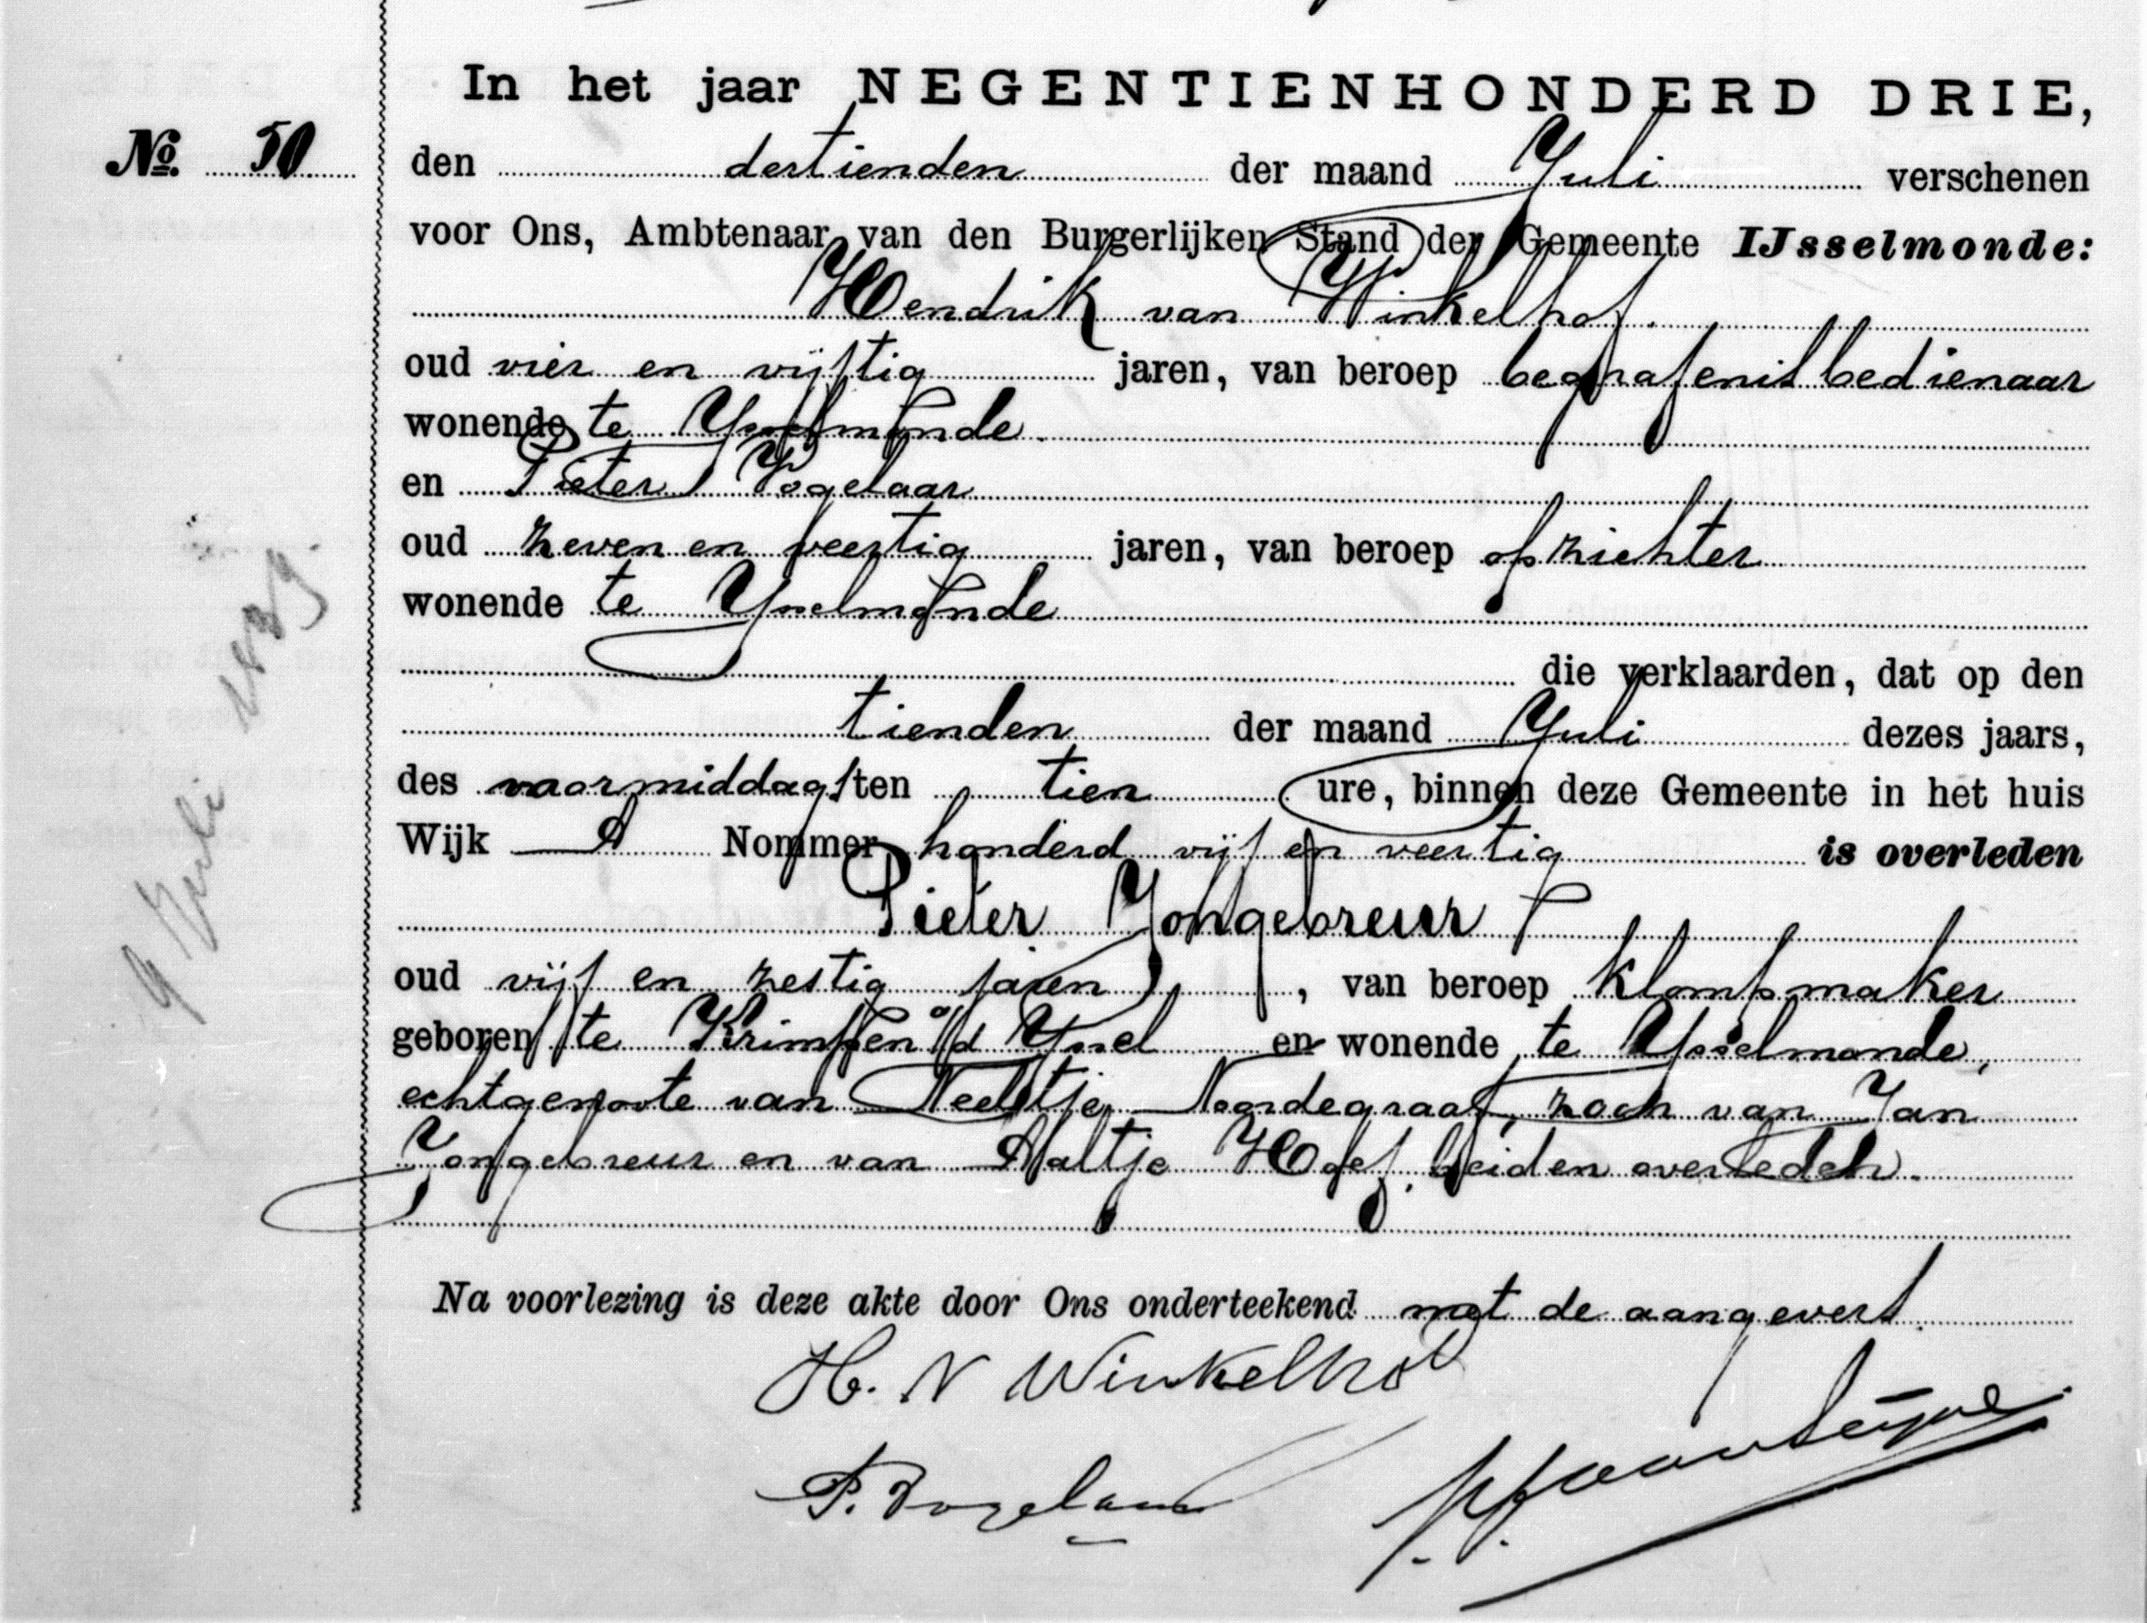 In het jaar NEGENTIENHONDERD DRIE,
No. 50
den dertienden der maand Juli verschenen
voor Ons, Ambtenaar van den Burgerlijken Stand der Gemeente IJsselmonde:
Hendrik van Winkelhof
oud vier en vijftig jaren, van beroep begrafenisbedienaar
wonende te Ysselmonde
en Pieter Vogelaar
oud zeven en veertig jaren, van beroep opzichter
wonende te Ysselmonde
die verklaarden, dat op den
tienden der maand Juli dezes jaars,
des voormiddags ten tien ure, binnen deze Gemeente in het huis
Wijk A Nommer honderd vijf en veertig is overleden
Pieter Jongebreur
oud vijf en zestig jaren, van beroep klompmaker
geboren te Krimpen a/d Yssel en wonende te Ysselmonde,
echtgenoote van Neeltje Noordegraaf, zoon van Jan
Jongebreur en van Aaltje Hoef, beiden overleden.
Na voorlezing is deze akte door Ons onderteekend met de aangevers.
H. v Winkelhof
P. Vogelaar
9 Juli